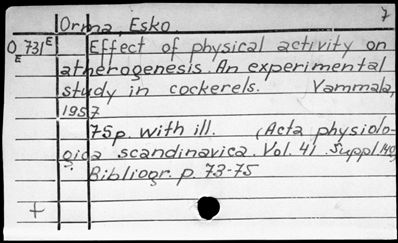 7
Orma, Esko.
O 731 E
E
Effect of physical activity on
atherogenesis. An experimental
study in cockerels. Vammala,
1957
75p. with ill. (Acta physiolo-
gica scandinavica. Vol. 41. Suppl.
Bibliogr. p. 73-75
+